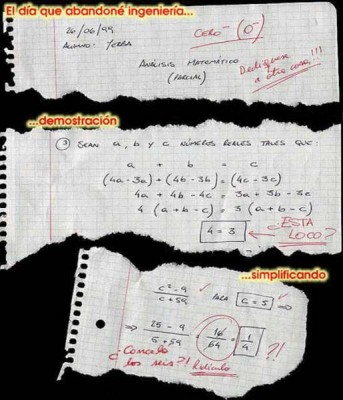 El día que abandoné ingeniería...
26/06/99
CERO⁻ (0⁻)
ALUMNO: YERGA
ANÁLISIS MATEMÁTICO
(PARCIAL)
Dedíquese
a otra cosa!!!
...demostración
③ SEAN a, b y c NÚMEROS REALES TALES QUE
a + b = c
(4a - 3a) + (4b - 3b) = (4c - 3c)
4a + 4b - 4c = 3a + 3b - 3c
4 (a + b - c) = 3 (a + b - c)
4 = 3
¿ESTA
LOCO?
...simplificando
c² - 9 / c + 59 PARA c = 5 ⇒
⇒ 25 - 9 / 5 + 59 = 16 / 64 = 1 / 4 ?!
¿Cancela
los seis?! Ridículo